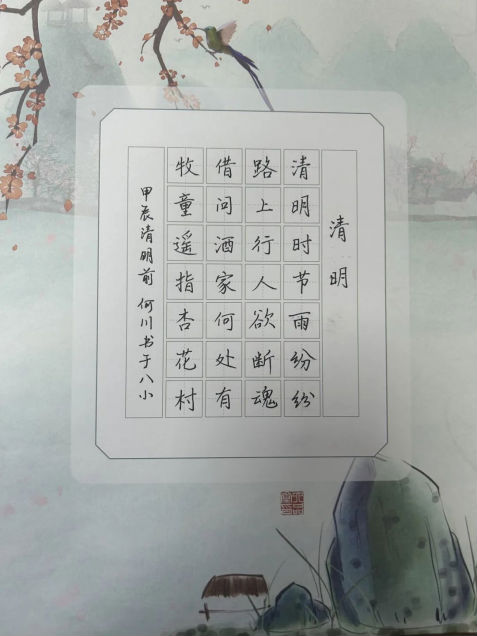 清明
清明时节雨纷纷
路上行人欲断魂
借问酒家何处有
牧童遥指杏花村
甲辰清明前 何川书于八小